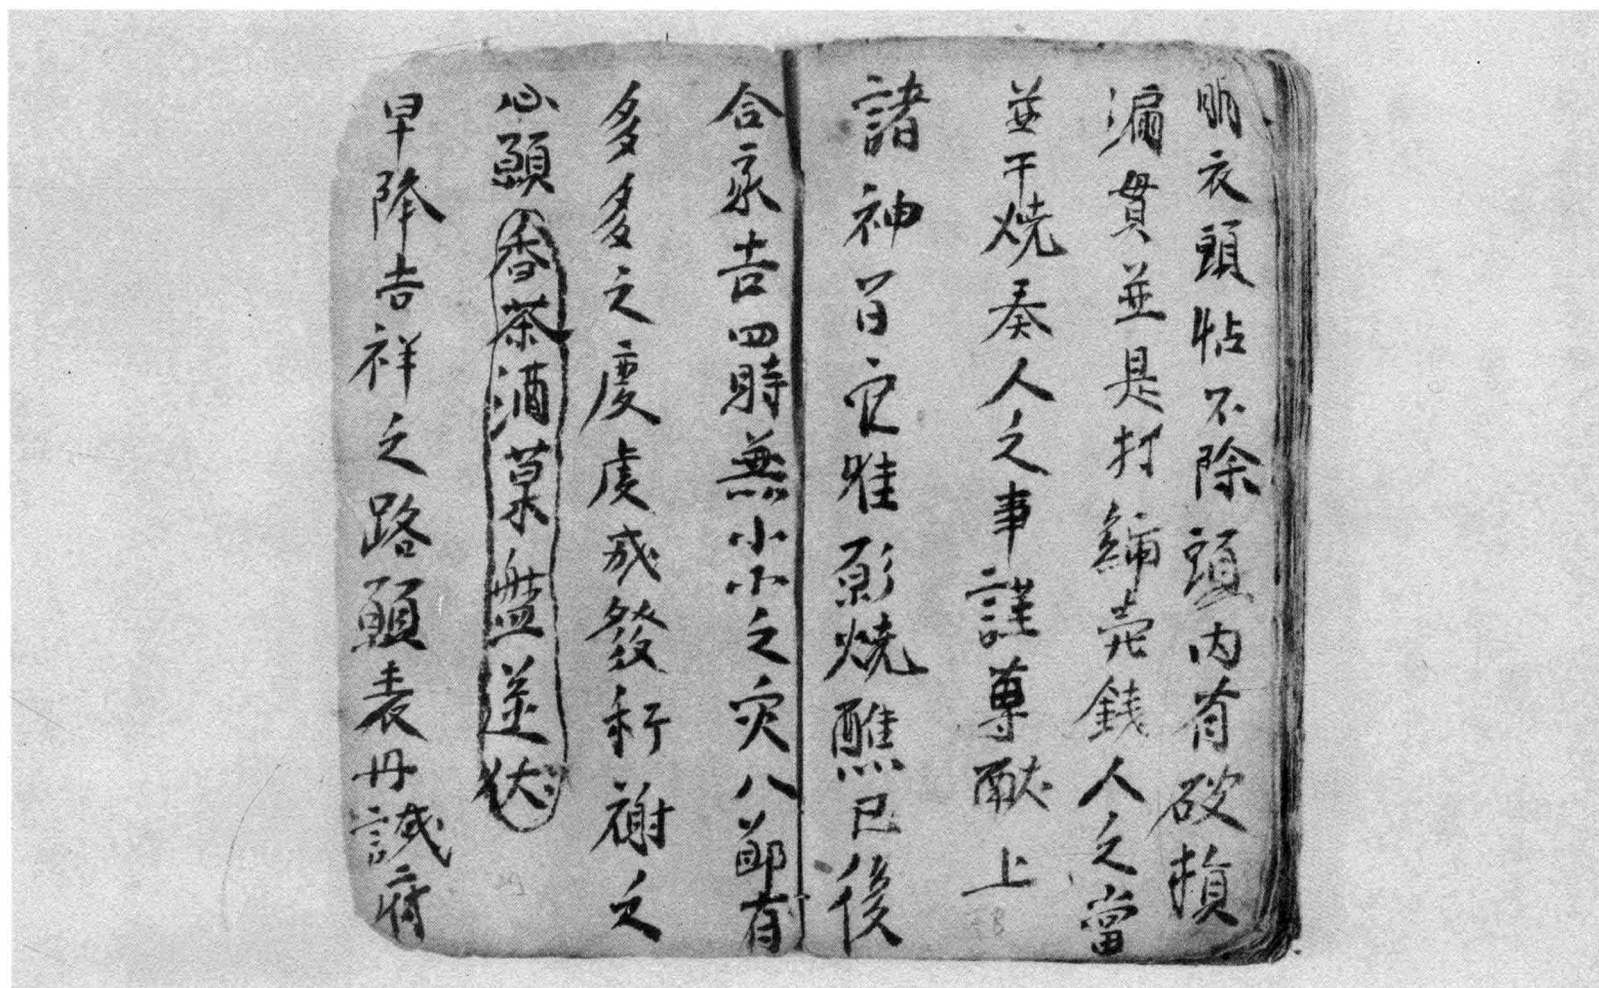 明衣頭帖不除頭内有破損
漏貫並是打編売銭人之當
並干燒奏人之事謹專献上
諸神百官唯願燒醮已後
合家吉四時無小小之灾八節有
多多之慶虔誠發祈謝之
心願香茶酒菓盤送伏
早降吉祥之路願表丹誠府